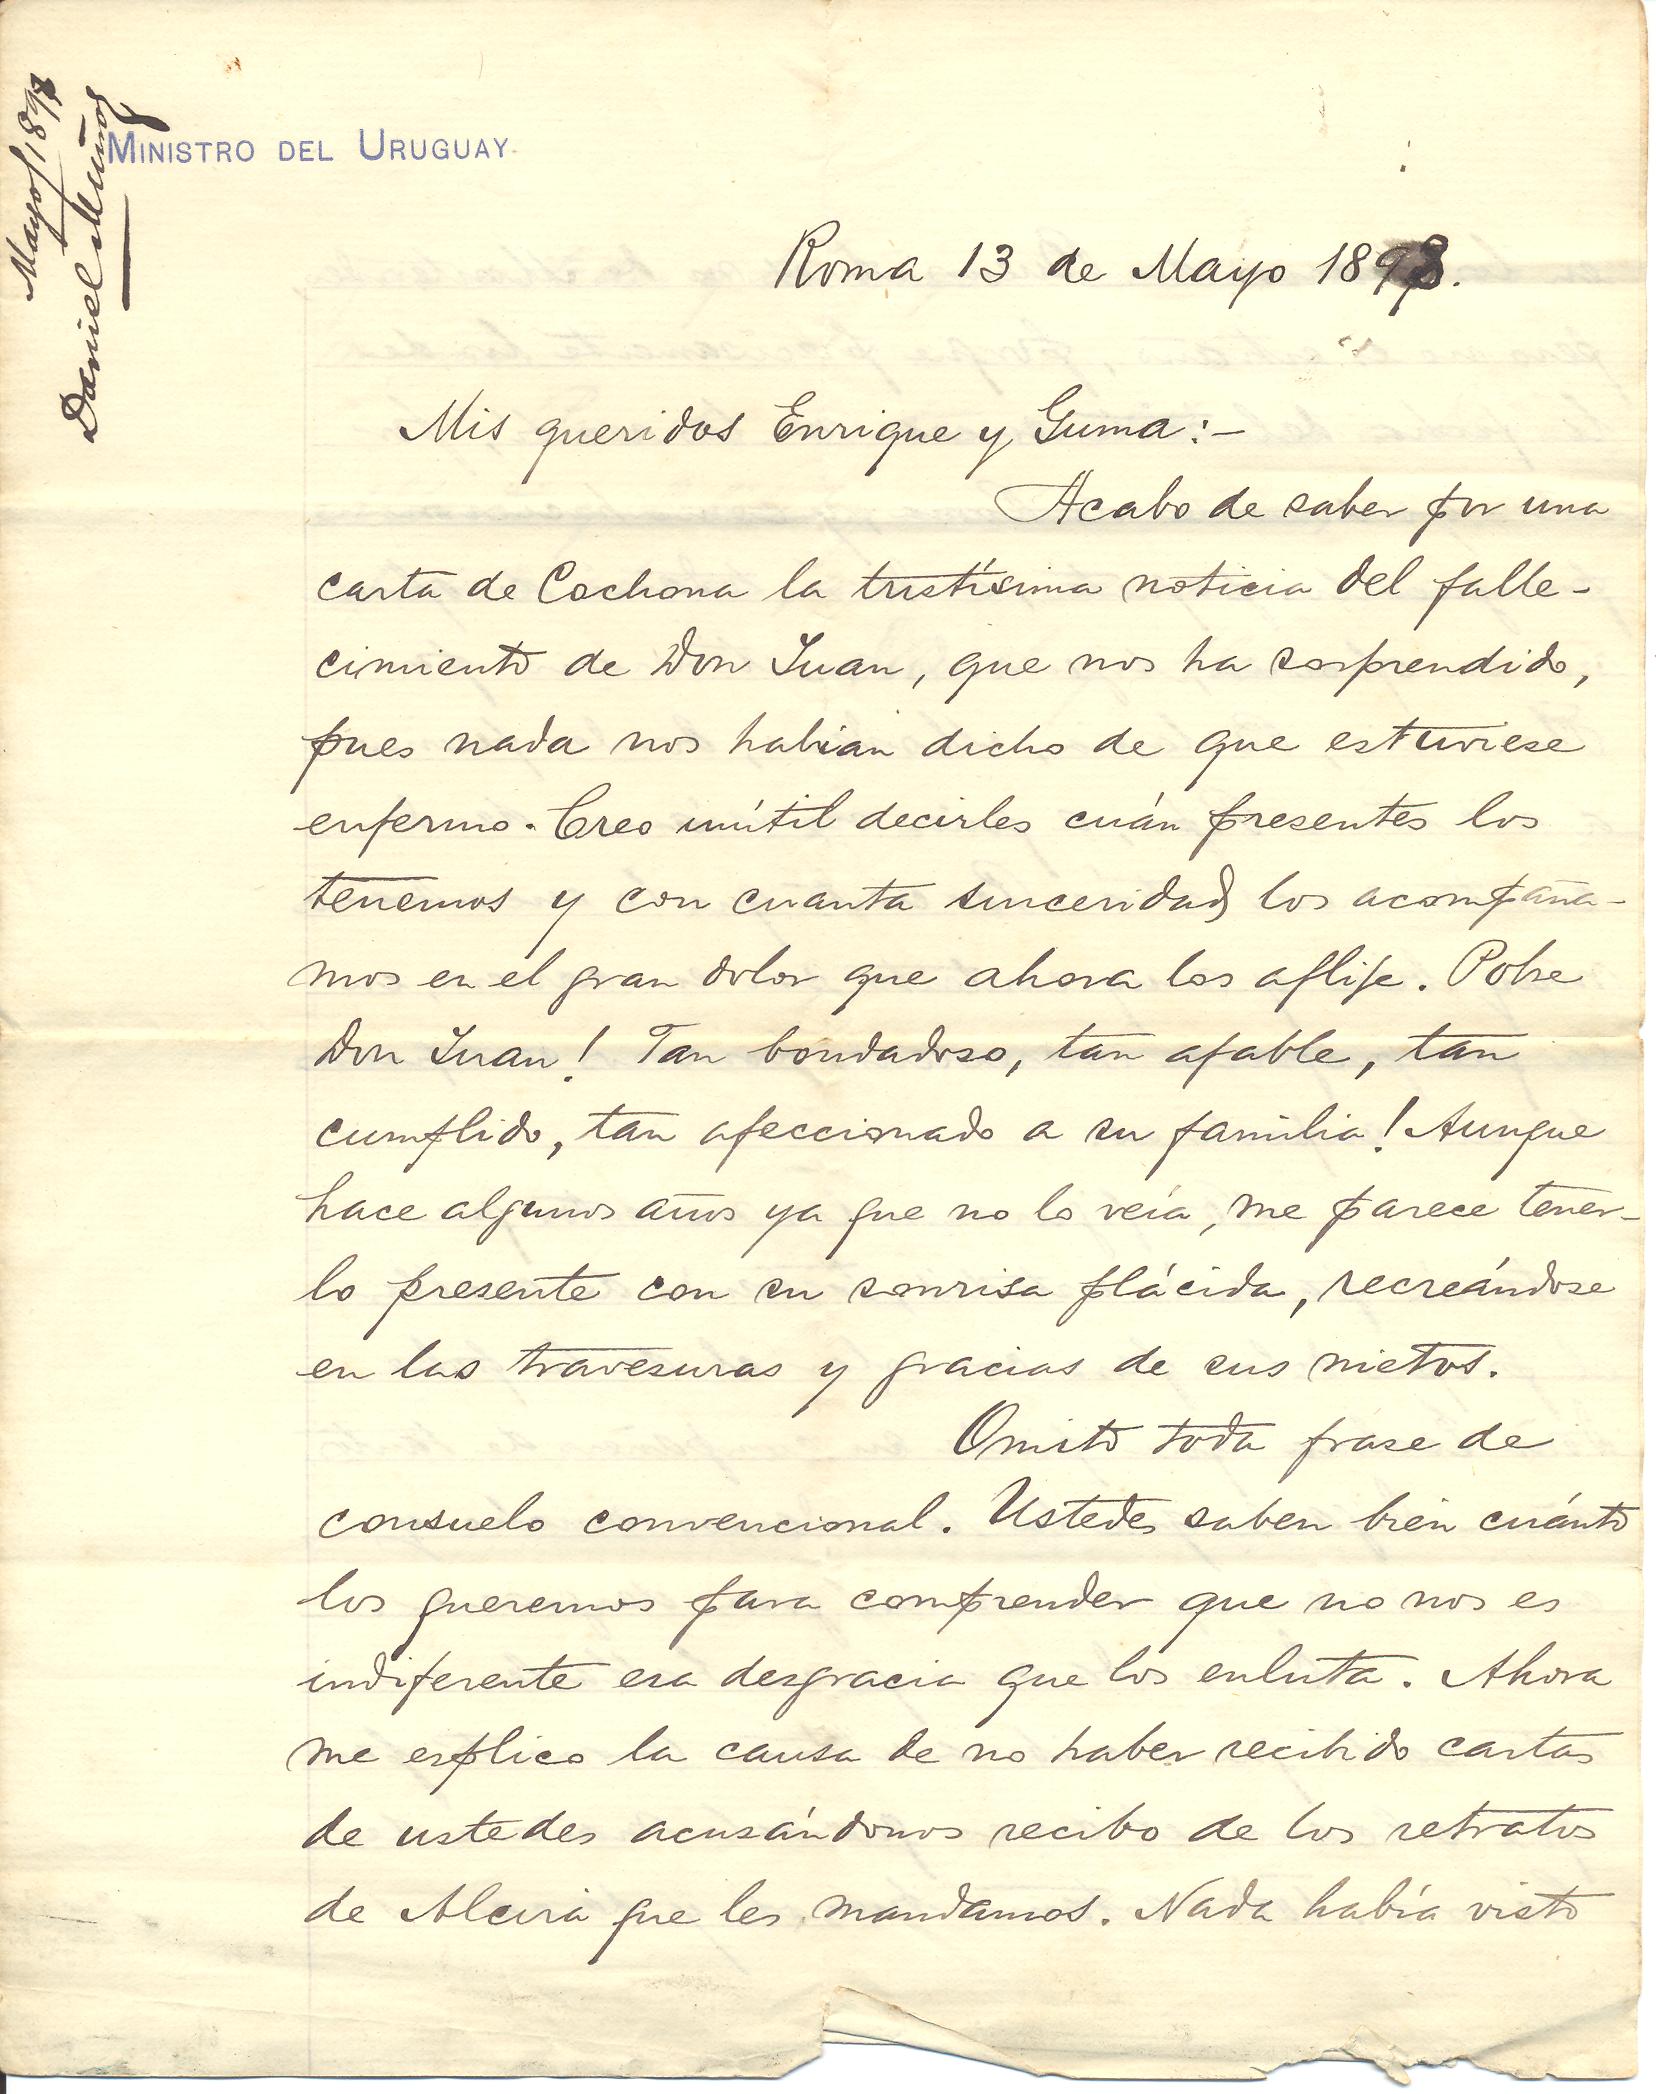 Mayo/1898
Daniel Muñoz
MINISTRO DEL URUGUAY
Roma 13 de Mayo 1898.
Mis queridos Enrique y Guma:-
Acabo de saber por una
carta de Cochona la tristísima noticia del falle-
cimiento de Don Juan, que nos ha sorprendido,
pues nada nos habian dicho de que estuviese
enfermo. Creo inútil decirles cuán presentes los
tenemos y con cuanta sinceridad los acompaña-
mos en el gran dolor que ahora los aflije. Pobre
Don Juan! Tan bondadoso, tan afable, tan
cumplido, tan afeccionado a su familia! Aunque
hace algunos años ya que no lo veía, me parece tener-
lo presente con su sonrisa plácida, recreándose
en las travesuras y gracias de sus nietos.
Omito toda frase de
consuelo convencional. Ustedes saben bien cuánto
los queremos para comprender que no nos es
indiferente esa desgracia que los enluta. Ahora
me esplico la causa de no haber recibido cartas
de ustedes acusándonos recibo de los retratos
de Alcira que les mandamos. Nada había visto